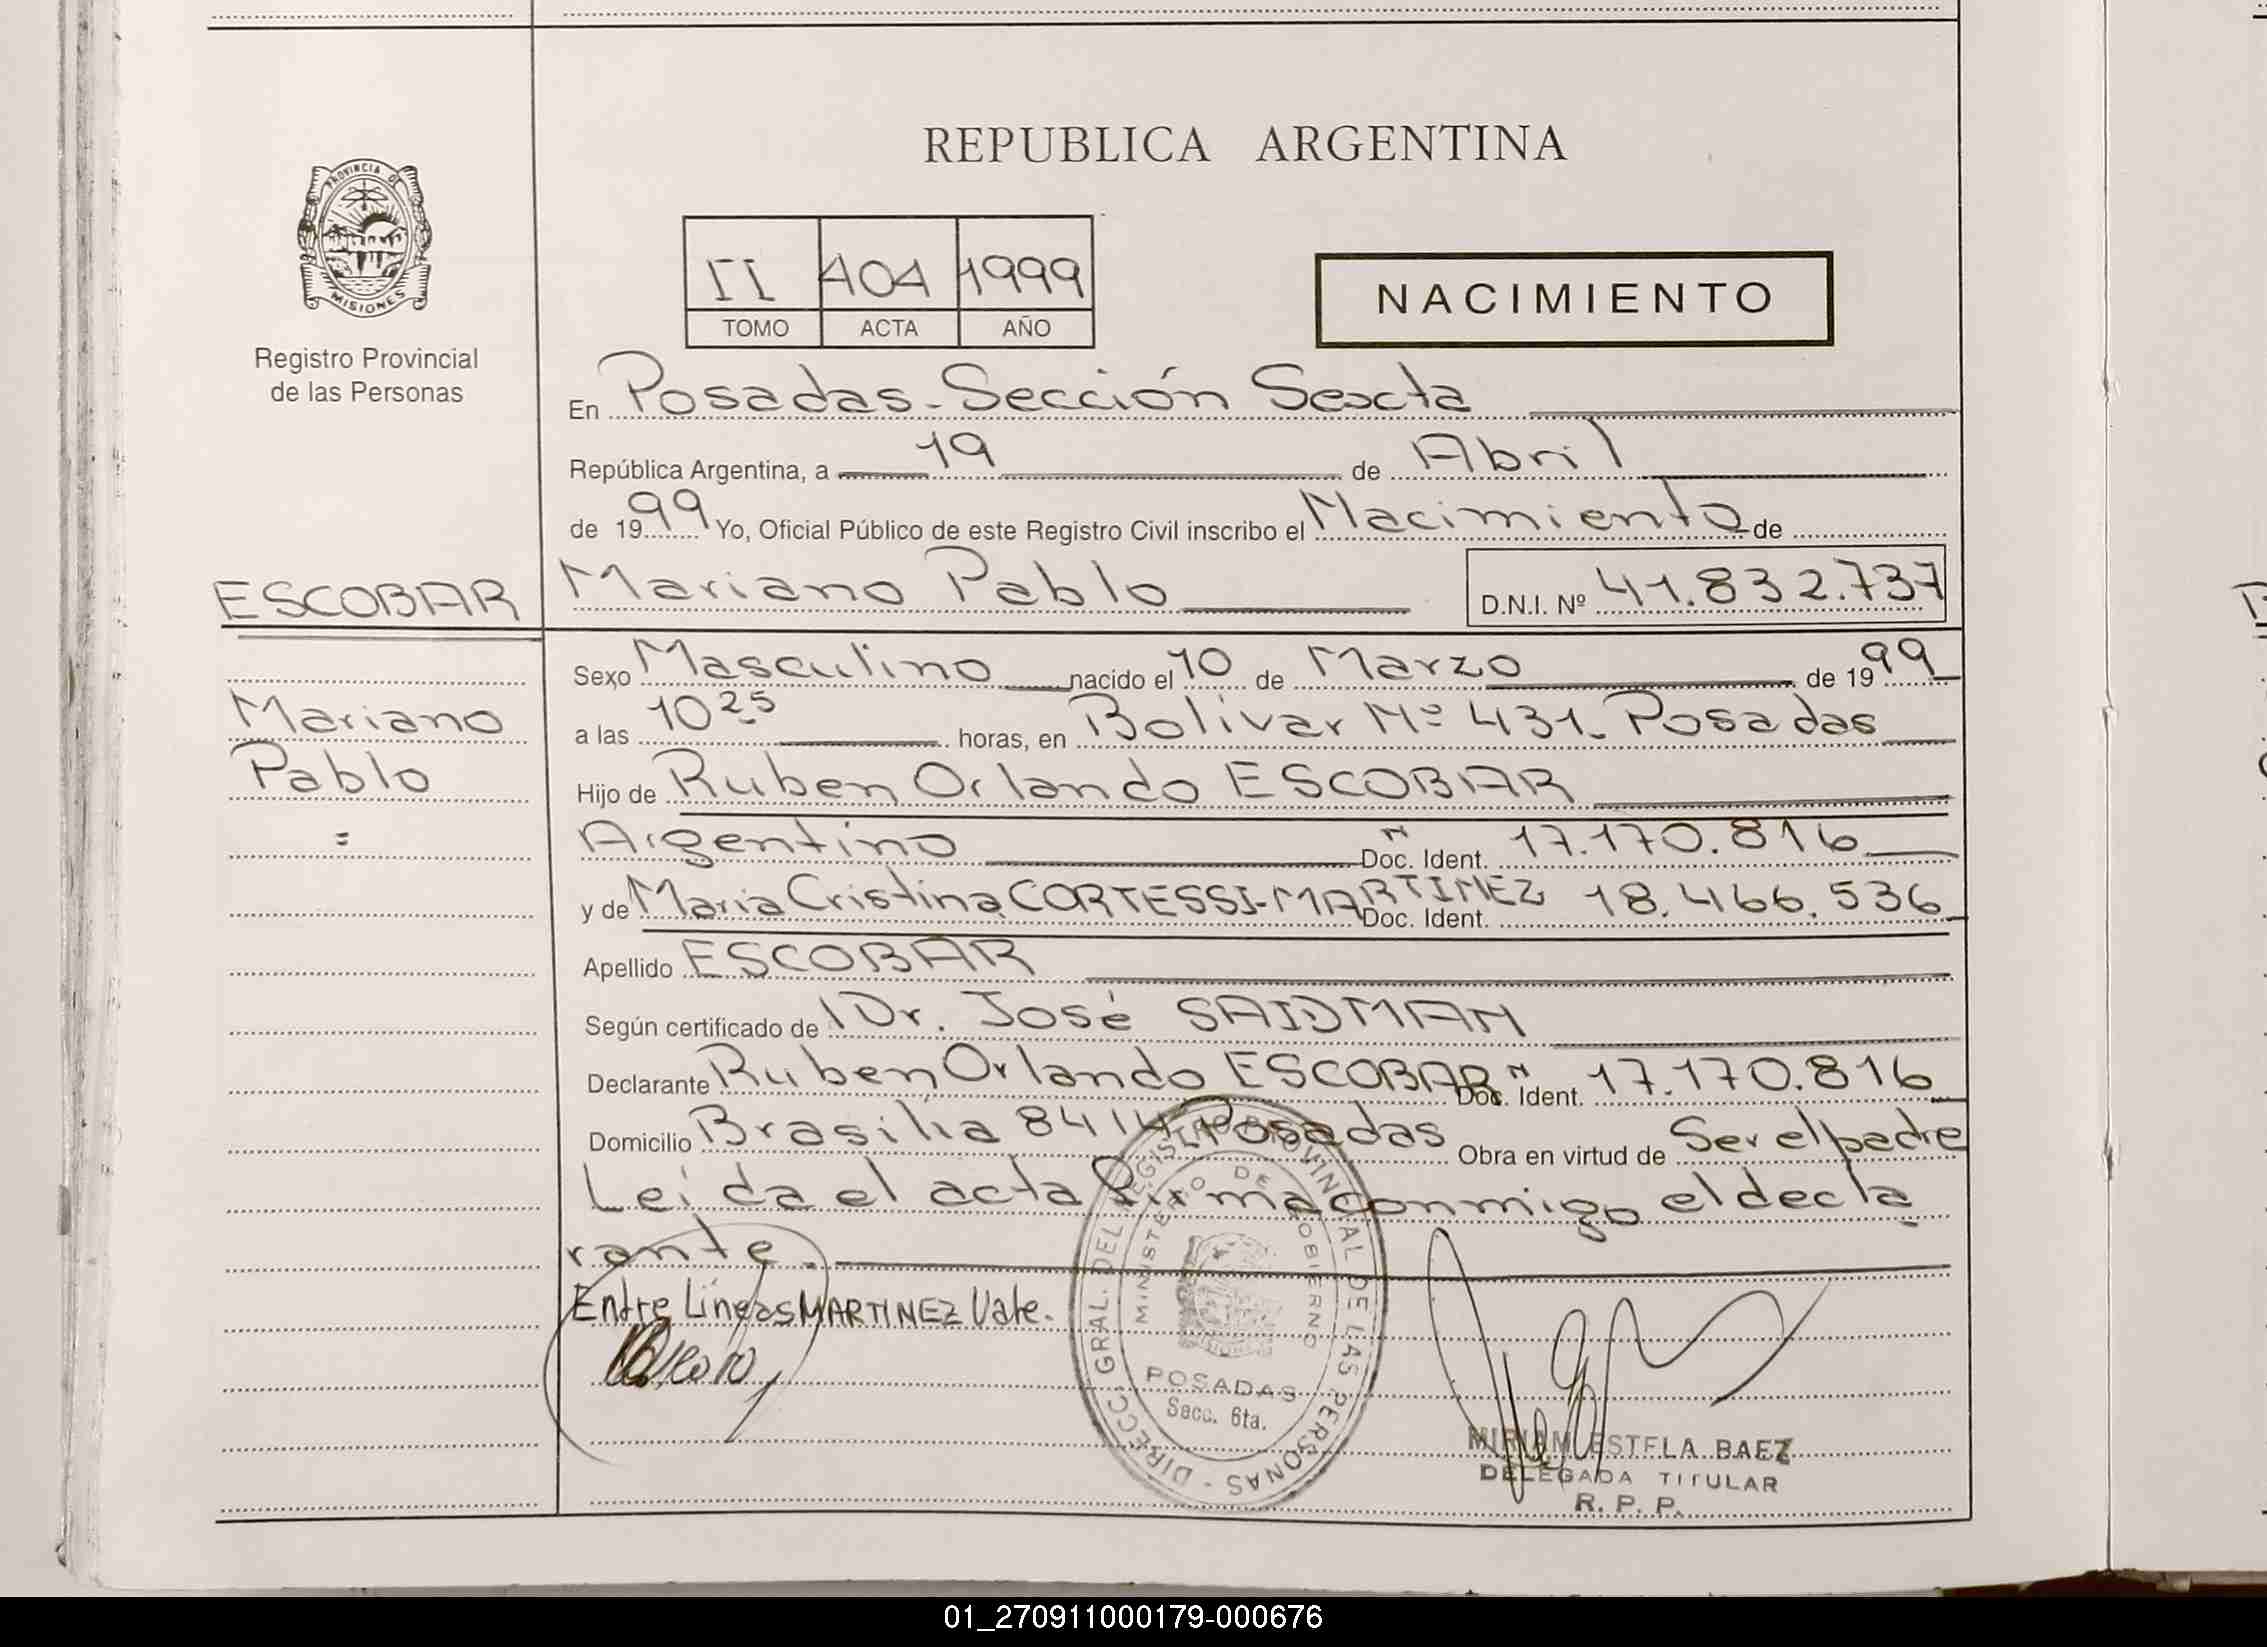 REPUBLICA ARGENTINA
PROVINCIA DE
MISIONES
Registro Provincial
de las Personas
II 404 1999
TOMO ACTA AÑO
NACIMIENTO
En Posadas - Sección Sexta
República Argentina, a 19 de Abril
de 1999 Yo, Oficial Público de este Registro Civil inscribo el Nacimiento de
ESCOBAR Mariano Pablo D.N.I. Nº 41.832.737
Sexo Masculino nacido el 10 de Marzo de 1999
Mariano
a las 10 25 horas, en Bolívar Nº 431. Posadas
Pablo
Hijo de Ruben Orlando ESCOBAR
=
Argentino Doc. Ident. 17.170.816
y de Maria Cristina CORTESSI-MARTINEZ Doc. Ident. 18.466.536
Apellido ESCOBAR
Según certificado de Dr. José SAIDMAN
Declarante Ruben Orlando ESCOBAR Doc. Ident. 17.170.816
Domicilio Brasilia 8414 Posadas Obra en virtud de Ser el padre
Leida el acta firma conmigo el decla
rante.
Entre Líneas MARTINEZ Vale.
DIRECC. GRAL. DEL REGISTRO PROVINCIAL DE LAS PERSONAS -
MINISTERIO DE GOBIERNO
POSADAS
Secc. 6ta.
MIRIAM ESTELA BAEZ
DELEGADA TITULAR
R. P. P.
01_270911000179-000676